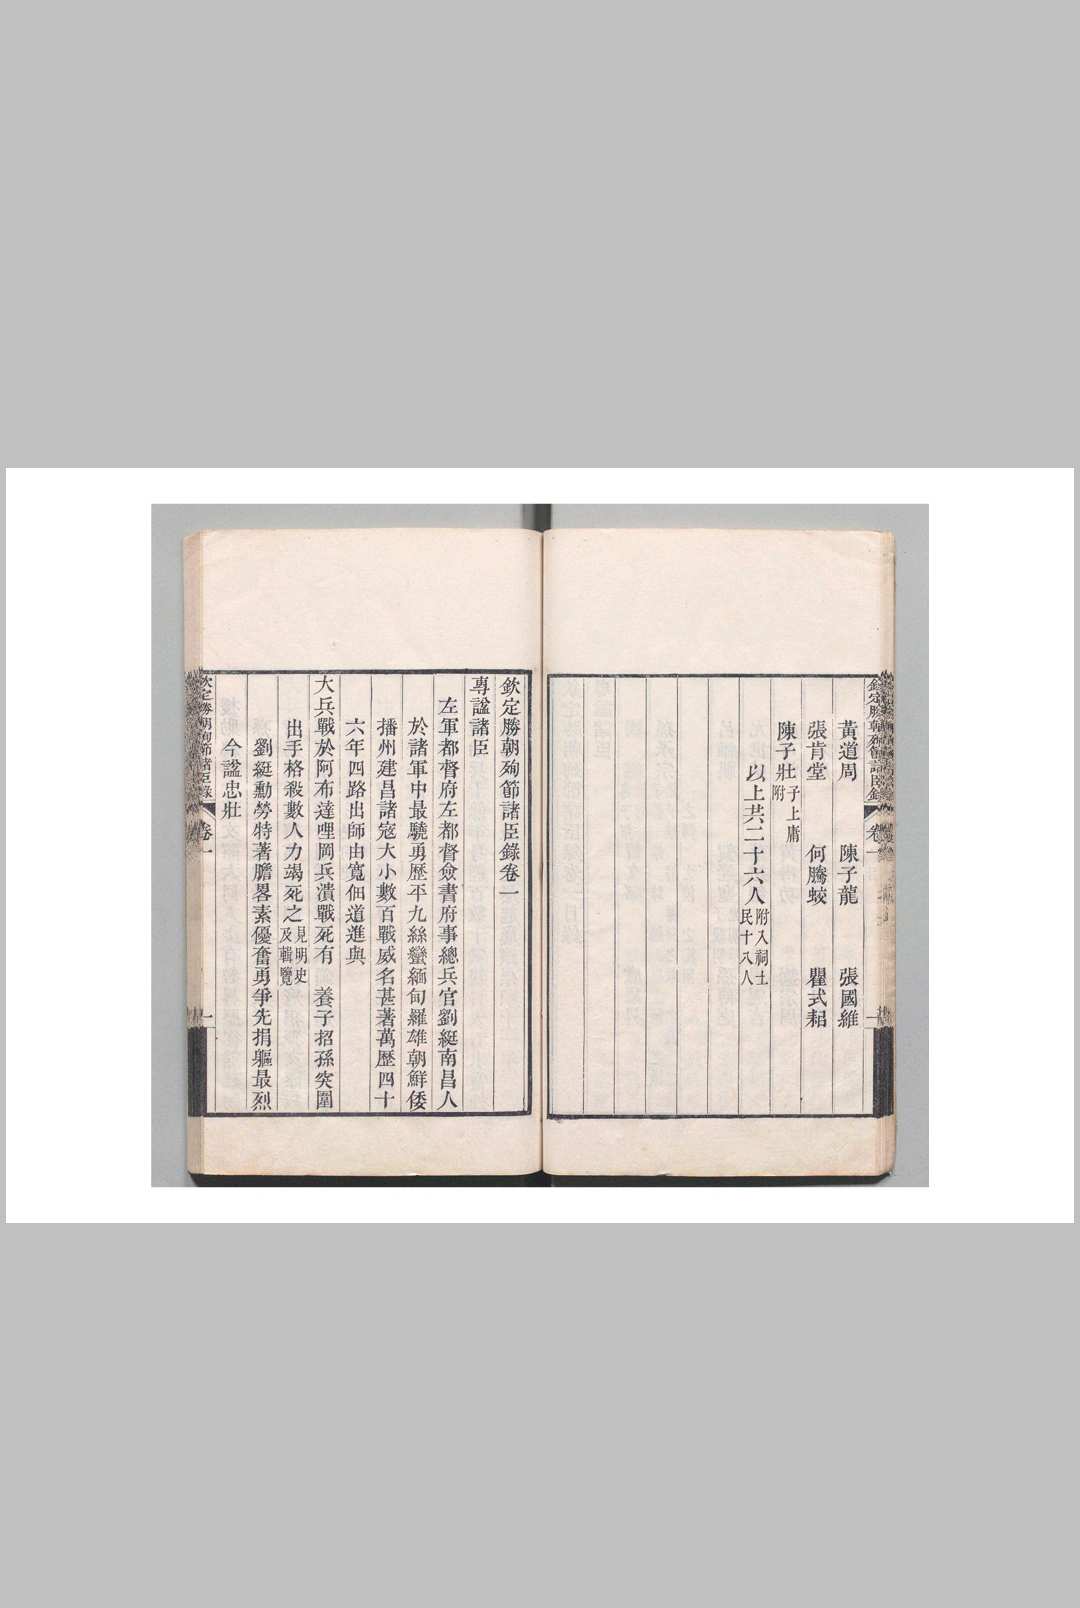 欽定勝朝殉節諸臣錄
卷一
一
黃道周 陳子龍 張國維
張肯堂 何騰蛟 瞿式耜
陳子壯子上庸附
以上共二十六人附入祠士民十八人
欽定勝朝殉節諸臣錄卷一
專諡諸臣
左軍都督府左都督僉書府事總兵官劉綎南昌人
於諸軍中最驍勇歷平九絲蠻緬甸羅雄朝鮮倭
播州建昌諸寇大小數百戰威名甚著萬歷四十
六年四路出師由寬佃道進與
大兵戰於阿布達哩岡兵潰戰死有 養子招孫突圍
出手格殺數人力竭死之見明史及輯覽
劉綎勳勞特著膽畧素優奮勇爭先捐軀最烈
今諡忠壯
欽定勝朝殉節諸臣錄
卷一
一